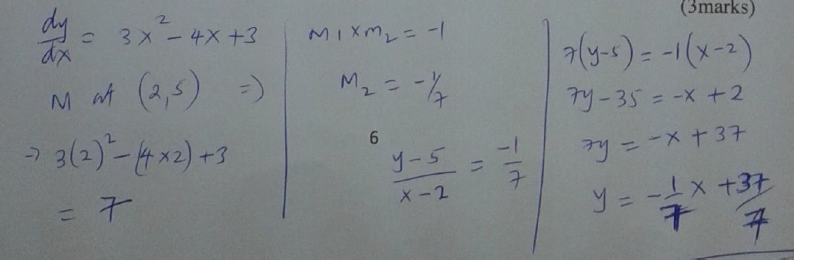 (3marks)
dy/dx = 3x² - 4x + 3
M at (2,5) =>
→ 3(2)² - (4×2) + 3
= 7
M1 × M2 = -1
M2 = -1/7
6
y-5/x-2 = -1/7
7(y-5) = -1(x-2)
7y - 35 = -x + 2
7y = -x + 37
y = -1/7 x + 37/7